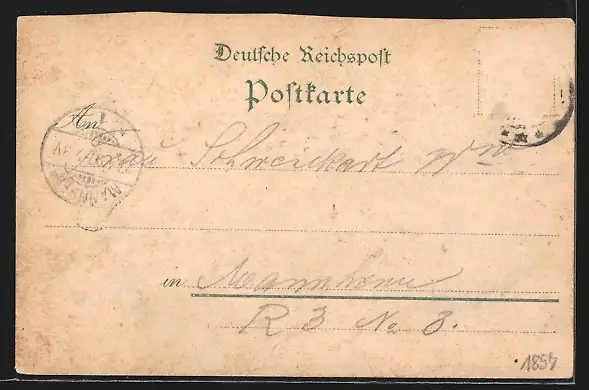 Deutsche Reichspost
Postkarte
An
Frau Schweikart Ww
MANNHEIM
in Mannheim
R 3 No 3.